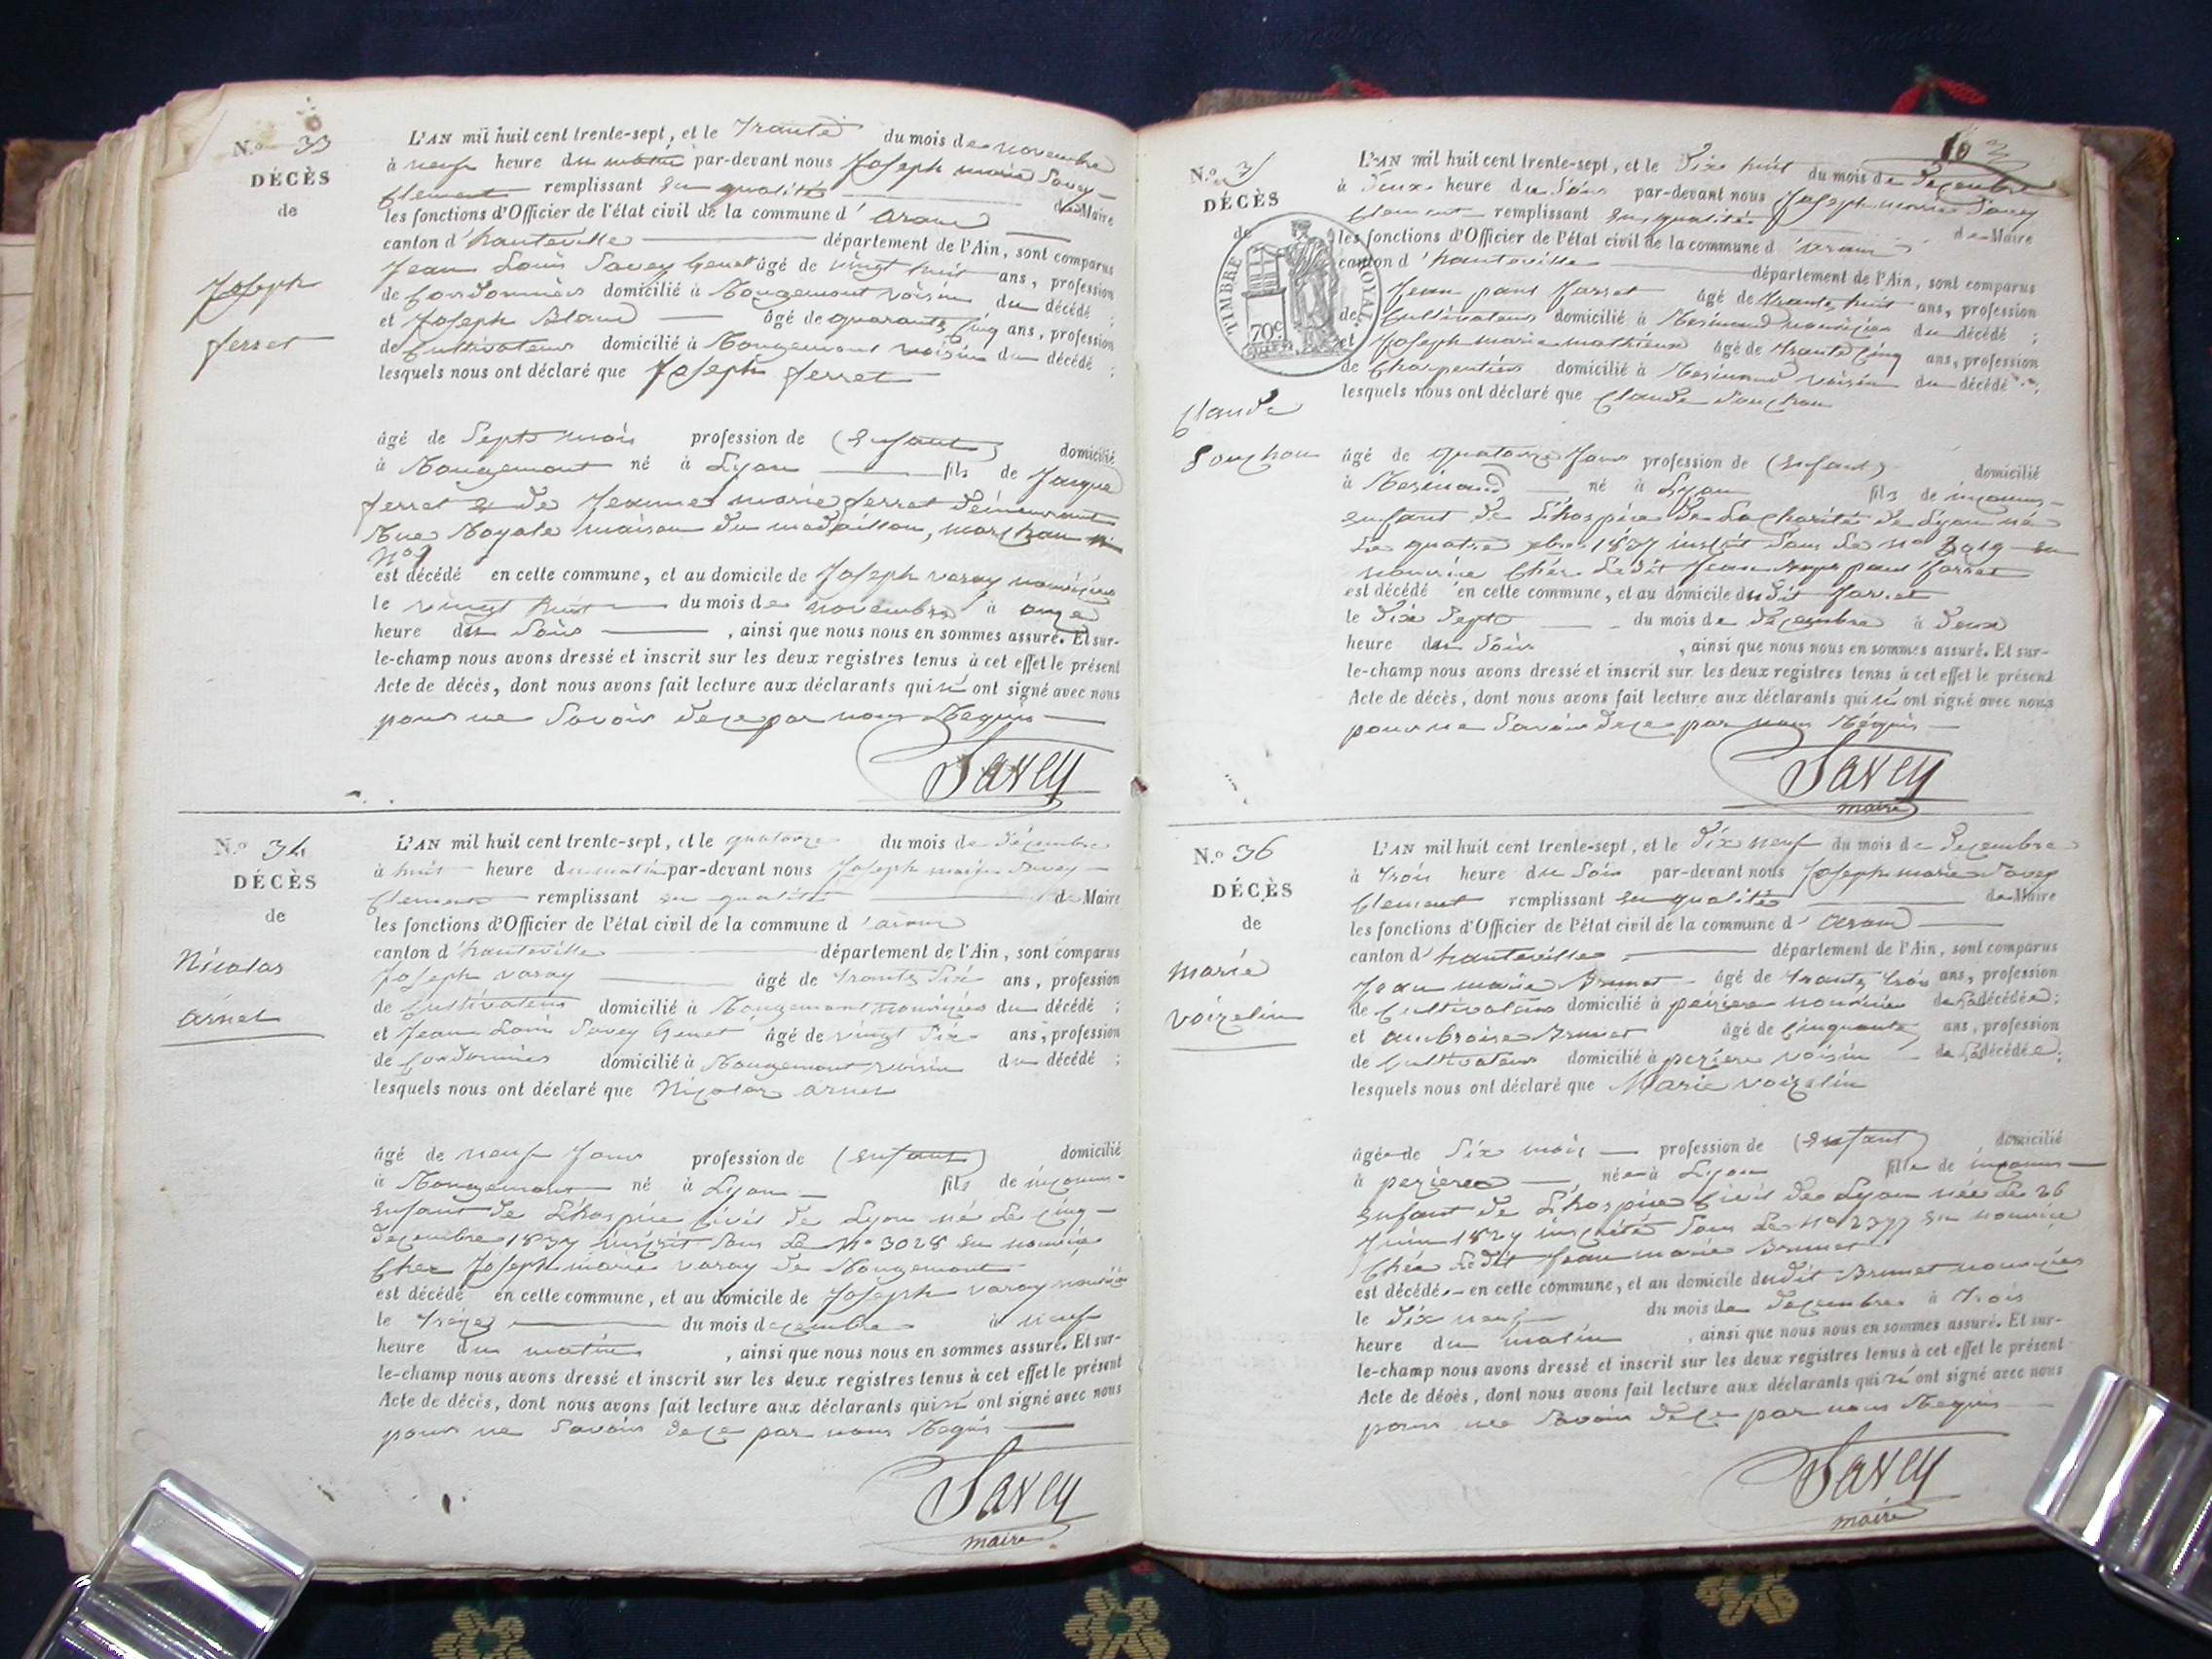 N.o 33
DÉCÈS
de
Joseph
ferret
L'AN mil huit cent trente-sept, et le trante du mois de novembre
à neuf heure du matin par-devant nous Joseph marie Savey
Clement remplissant en qualité de Maire
les fonctions d'Officier de l'état civil de la commune d' aranc
canton d' hauteville département de l'Ain, sont comparus
Jean Louis Savey Genet âgé de vingt huit ans, profession
de Cordonnier domicilié à Rougemont voisin du décédé ;
et Joseph Blanc âgé de quarante Cinq ans, profession
de Cultivateur domicilié à Rougemont voisin du décédé ;
lesquels nous ont déclaré que Joseph ferret
âgé de Sept mois profession de (Enfant) domicilié
à Rougemont né à Lyon fils de Jaque
ferret et de Jeanne marie ferret demeurant
Rue Royale maison du medaillon,
No 1
est décédé en cette commune, et au domicile de Joseph varay nouricier
le vingt huit du mois de novembre à onze
heure du Soir , ainsi que nous nous en sommes assuré. Et sur-
le-champ nous avons dressé et inscrit sur les deux registres tenus à cet effet le présent
Acte de décès, dont nous avons fait lecture aux déclarants qui n' ont signé avec nous
pour ne Savoir de ce par nous Requis
Savey
N.o 34
DÉCÈS
de
Nicolas
arnet
L'AN mil huit cent trente-sept, et le quatorze du mois de décembre
à huit heure du matin par-devant nous Joseph marie Savey
Clement remplissant en qualité de Maire
les fonctions d'Officier de l'état civil de la commune d' aranc
canton d' hauteville département de l'Ain, sont comparus
Joseph varay âgé de trante Six ans, profession
de Cultivateur domicilié à Rougemont nouricier du décédé ;
et Jean Louis Savey Genet âgé de vingt ans, profession
de Cordonnier domicilié à Rougemont voisin du décédé ;
lesquels nous ont déclaré que Nicolas arnet
âgé de neuf Jours profession de (Enfant) domicilié
à Rougemont né à Lyon fils de inconnus
Enfant de L'hospice Civil de Lyon né Le Cinq
decembre 1837 inscrit Sous Le No 3028 En nourice
Chez Joseph marie varay de Rougemont
est décédé en cette commune, et au domicile de Joseph varay nouricier
le treize du mois decembre à neuf
heure du matin , ainsi que nous nous en sommes assuré. Et sur-
le-champ nous avons dressé et inscrit sur les deux registres tenus à cet effet le présent
Acte de décès, dont nous avons fait lecture aux déclarants qui n' ont signé avec nous
pour ne Savoir de ce par nous Requis
Savey
maire
10
N.o 3
DÉCÈS
de
TIMBRE ROYAL
70c
Claude
Souchon
L'AN mil huit cent trente-sept, et le Dix huit du mois de Decembre
à Deux heure du Soir par-devant nous Joseph marie Savey
Clement remplissant En qualité de Maire
les fonctions d'Officier de l'état civil de la commune d' aranc
canton d' hauteville département de l'Ain, sont comparus
Jean paul âgé de trante huit ans, profession
de Cultivateur domicilié à Resinand nouricier du décédé ;
et Joseph marie mathieux âgé de trante Cinq ans, profession
de Charpentier domicilié à Resinand voisin du décédé ;
lesquels nous ont déclaré que Claude Souchon
âgé de quatorze Jours profession de (Enfant) domicilié
à Resinand né à Lyon fils de inconnus
Enfant de L'hospice De La charité de Lyon né
Le quatre xbre 1837 inscrit Sous Le No 3019 En
nourice Chez Ledit Jean paul
est décédé en cette commune, et au domicile dudit
le Dix Sept du mois de Decembre à Deux
heure du Soir , ainsi que nous nous en sommes assuré. Et sur-
le-champ nous avons dressé et inscrit sur les deux registres tenus à cet effet le présent
Acte de décès, dont nous avons fait lecture aux déclarants qui n' ont signé avec nous
pour ne Savoir de ce par nous Réquis
Savey
maire
N.o 36
DÉCÈS
de
marie
voizelin
L'AN mil huit cent trente-sept, et le Dix neuf du mois de Decembre
à trois heure du Soir par-devant nous Joseph marie Savey
Clement remplissant En qualité de Maire
les fonctions d'Officier de l'état civil de la commune d' aranc
canton d' hauteville département de l'Ain, sont comparus
Jean marie Brunet âgé de trante trois ans, profession
de Cultivateur domicilié à peziere nouricier de La décédée ;
et ambroise Brunet âgé de Cinquante ans, profession
de Cultivateur domicilié à peziere voisin de La décédée ;
lesquels nous ont déclaré que Marie voizelin
âgée de Six mois profession de (Enfant) domicilié
à peziere née à Lyon fille de inconnus
Enfant de L'hospice Civil de Lyon née Le 26
Juin 1837 inscrite Sous Le No En nourice
Chez Ledit Jean marie Brunet
est décédée en cette commune, et au domicile dudit Brunet nouricier
le Dix neuf du mois de decembre à trois
heure du matin , ainsi que nous nous en sommes assuré. Et sur-
le-champ nous avons dressé et inscrit sur les deux registres tenus à cet effet le présent
Acte de décès, dont nous avons fait lecture aux déclarants qui n' ont signé avec nous
pour ne Savoir de ce par nous Requis
Savey
maire